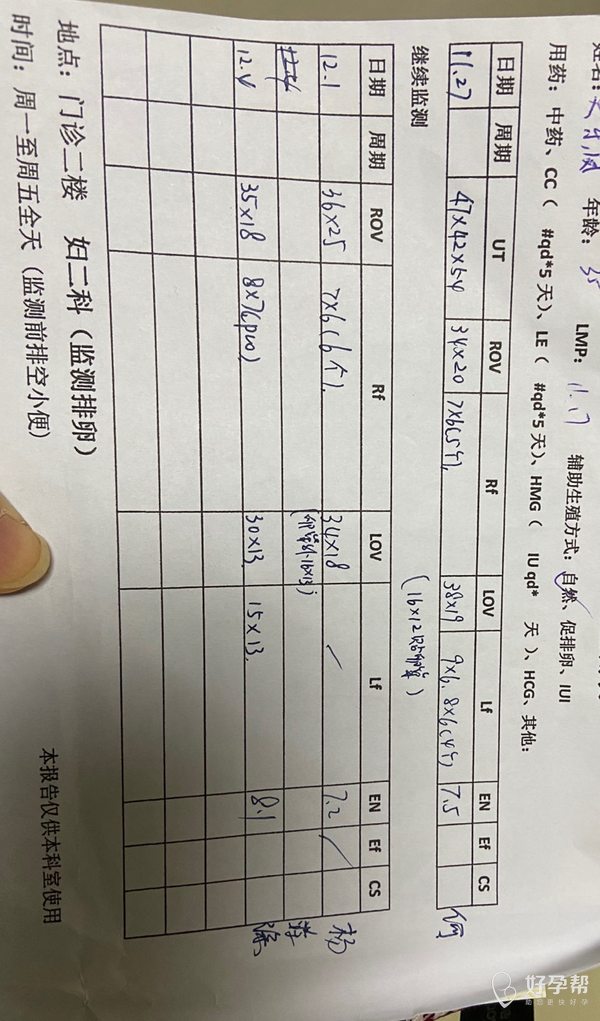 姓名: 年龄: 35 LMP: 11.17 辅助生殖方式: 自然、促排卵、IUI
用药: 中药、CC( #qd*5天)、LE( #qd*5天)、HMG( IU qd* 天)、HCG、其他:
日期 周期 UT ROV Rf LOV Lf EN Ef CS
11.27 47×42×54 34×20 7×6(5个) 38×19 9×6. 8×6(4个) 7.5 何
继续监测 (16×12
日期 周期 ROV Rf LOV Lf EN Ef CS
12.1 36×25 7×6(6个) 34×18 / 7.2 / 杨
12.4 35×18 8×7(pco) 30×13 15×13. 8.1
地点: 门诊二楼 妇二科(监测排卵)
时间: 周一至周五全天(监测前排空小便) 本报告仅供本科室使用
好孕帮
助您更快好孕